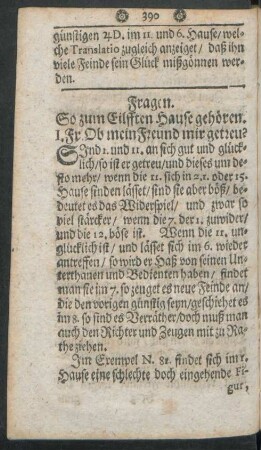 390
günstigen ♃ D. im 11. und 6. Hause/ wel-
che Translatio zugleich anzeiget/ daß ihn
viele Feinde sein Glück mißgönnen wer-
den.
Fragen.
So zum Eilfften Hause gehören.
I. Fr. Ob mein Freund mir getreu?
Synd 1. und 11. an sich gut und glück-
lich/ so ist er getreu/ und dieses um de-
sto mehr/ wenn die 11. sich in 2. 1. oder 15.
Hause finden lässet/ sind sie aber böß/ be-
deutet es das Widerspiel/ und zwar so
viel stärcker/ wenn die 7. der 11. zuwider/
und die 12, böse ist. Wenn die 11, un-
glücklich ist/ und lässet sich im 6. wieder
antreffen/ so wird er Haß von seinen Un-
terthanen und Bedienten haben/ findet
man sie im 7. so zeuget es neue Feinde an/
die den vorigen günstig seyn/ geschiehet es
im 8. so sind es Verräther/ doch muß man
auch den Richter und Zeugen mit zu Ra-
the ziehen.
Im Exempel N. 81. findet sich im 1.
Hause eine schlechte doch eingehende Fi-
gur,